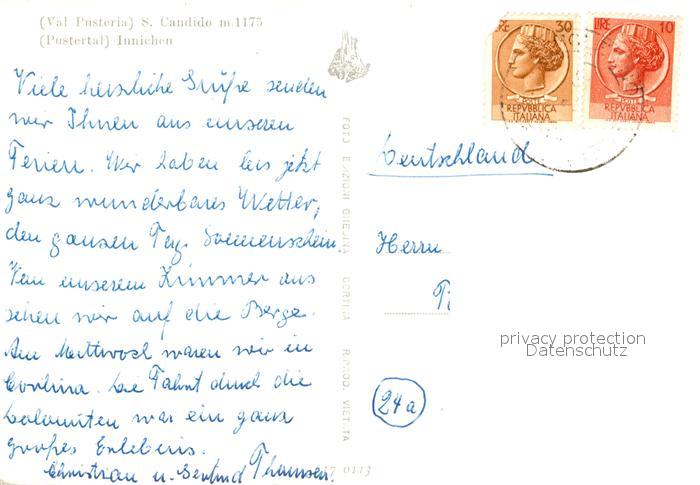 (Val Pusteria) S. Candido m.1175
(Pustertal) Innichen
Viele herzliche Grüße senden
wir Ihnen aus unseren
Ferien. Wir haben bis jetzt
ganz wunderbares Wetter,
den ganzen Tag Sonnenschein.
Von unserem Zimmer aus
sehen wir auf die Berge.
Am Mittwoch waren wir in
Cortina. Die Fahrt durch die
Dolomiten war ein ganz
großes Erlebnis.
Christian u. Gertrud Thomsen.
FOTO EDIZIONI GHEDINA CORTINA RIPROD. VIETATA
0113
LIRE 30
POSTE
REPVBBLICA
ITALIANA
LIRE 10
POSTE
REPVBBLICA
ITALIANA
Deutschland
Herrn
privacy protection
Datenschutz
24a